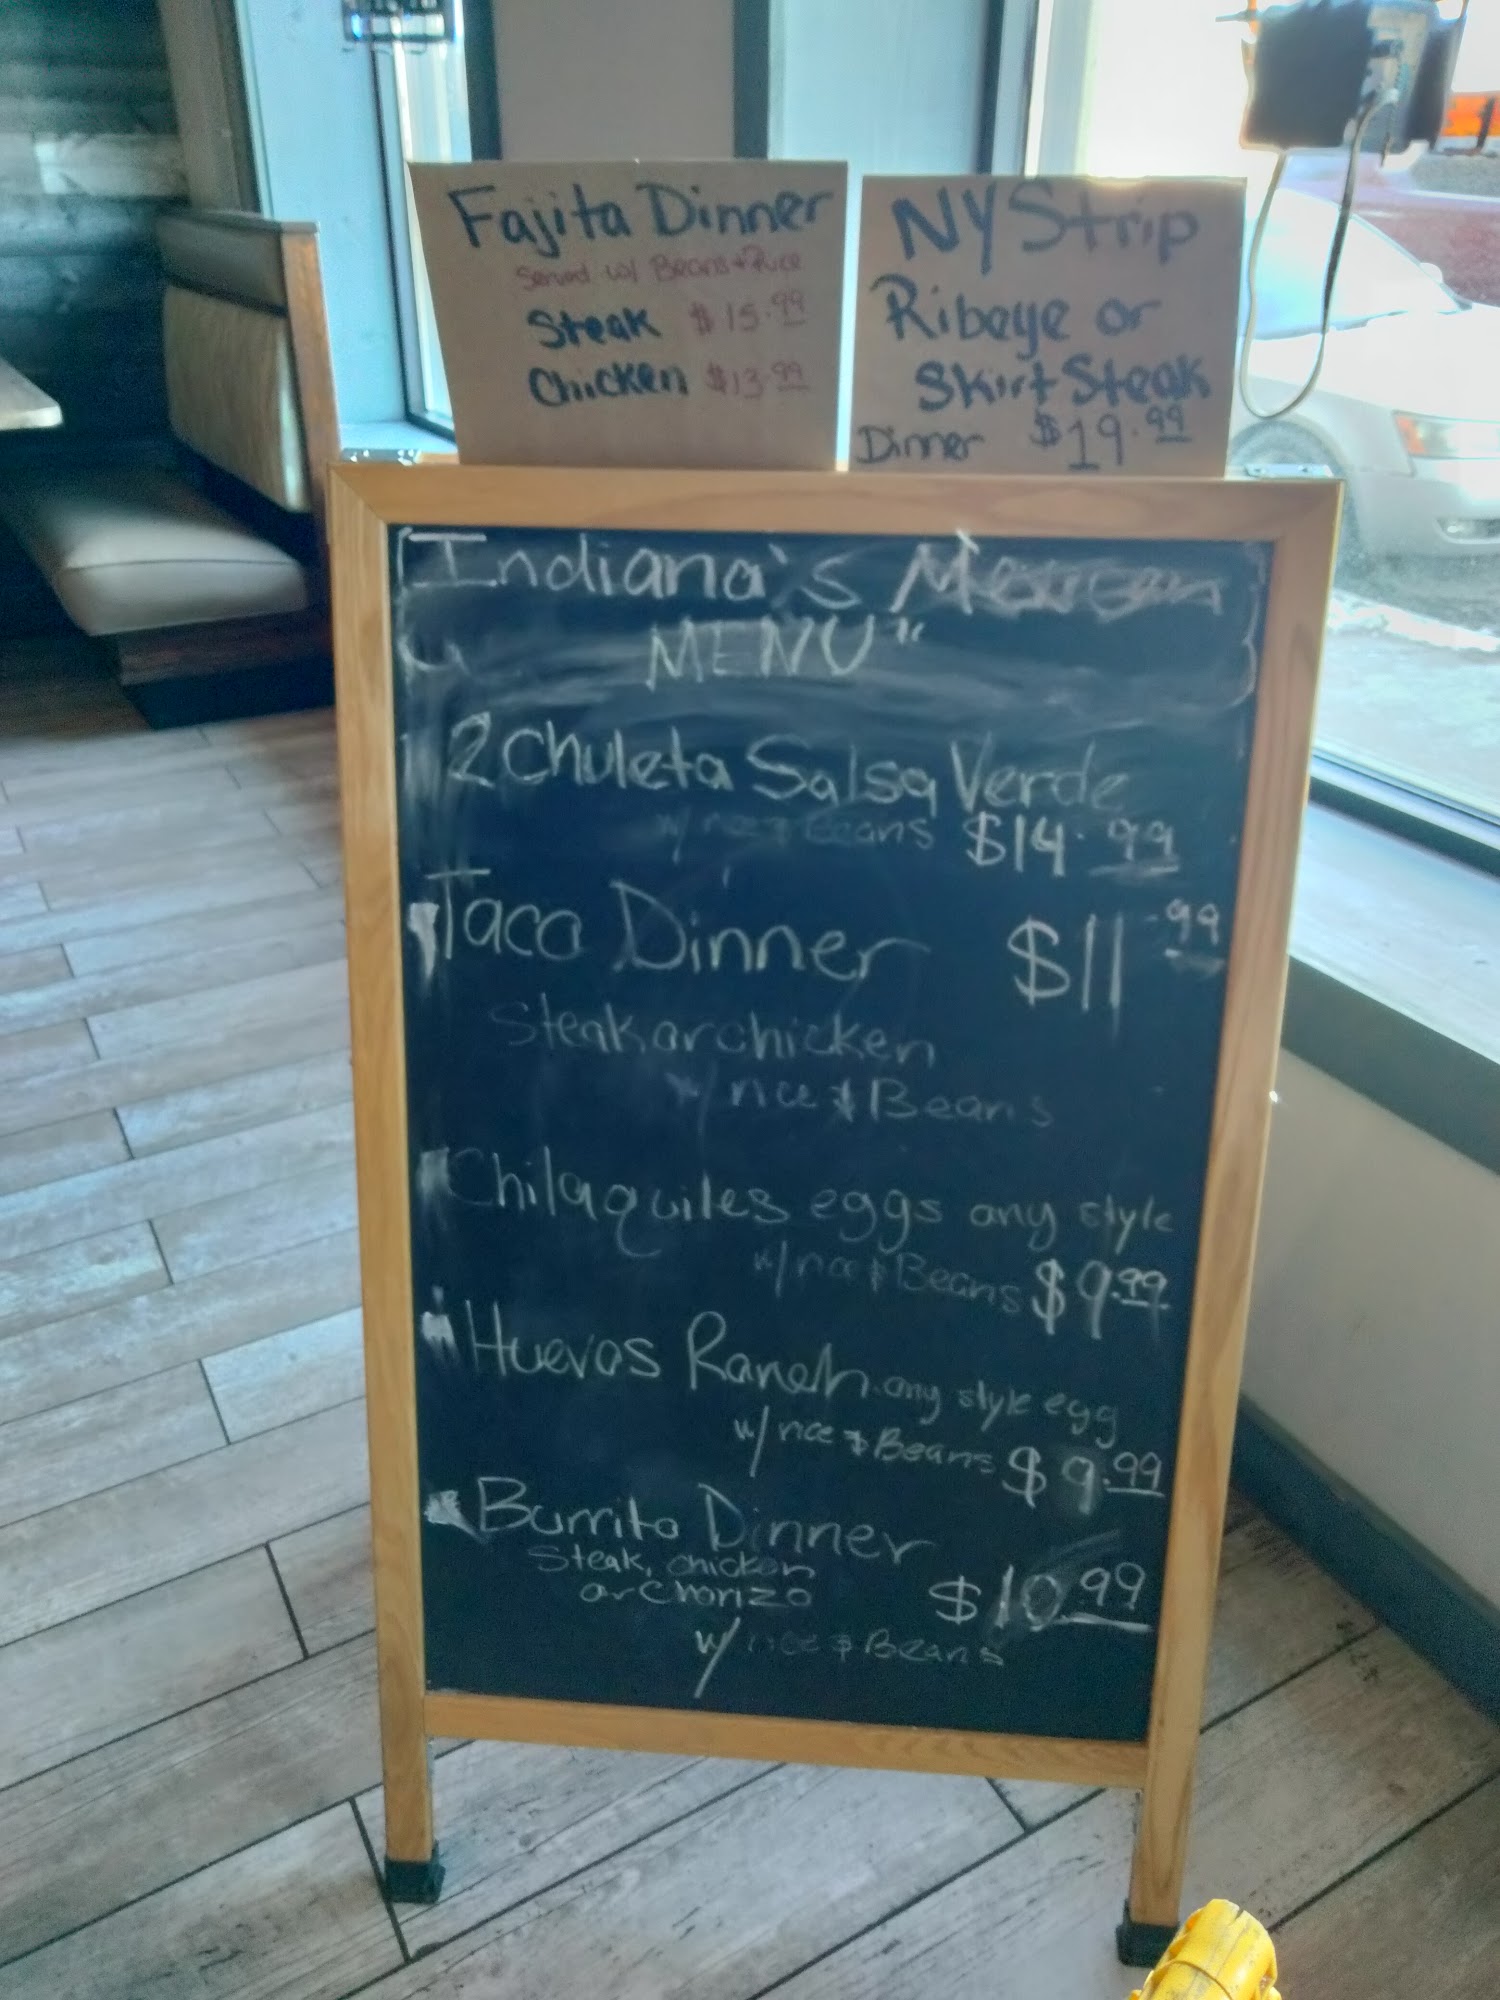 Fajita Dinner
Served w/ Beans + Rice
Steak $15.99
Chicken $13.99
NY Strip
Ribeye or
Skirt Steak
Dinner $19.99
Indiana's Mexican
MENU"
2 Chuleta Salsa Verde
w/ rice & Beans $14.99
Taco Dinner $11.99
Steak or chicken
w/ rice & Beans
Chilaquiles eggs any style
w/ rice & Beans $9.99
Huevos Ranch. any style egg
w/ rice & Beans $9.99
Burrito Dinner
Steak, chicken
or Chorizo $10.99
w/ rice & Beans